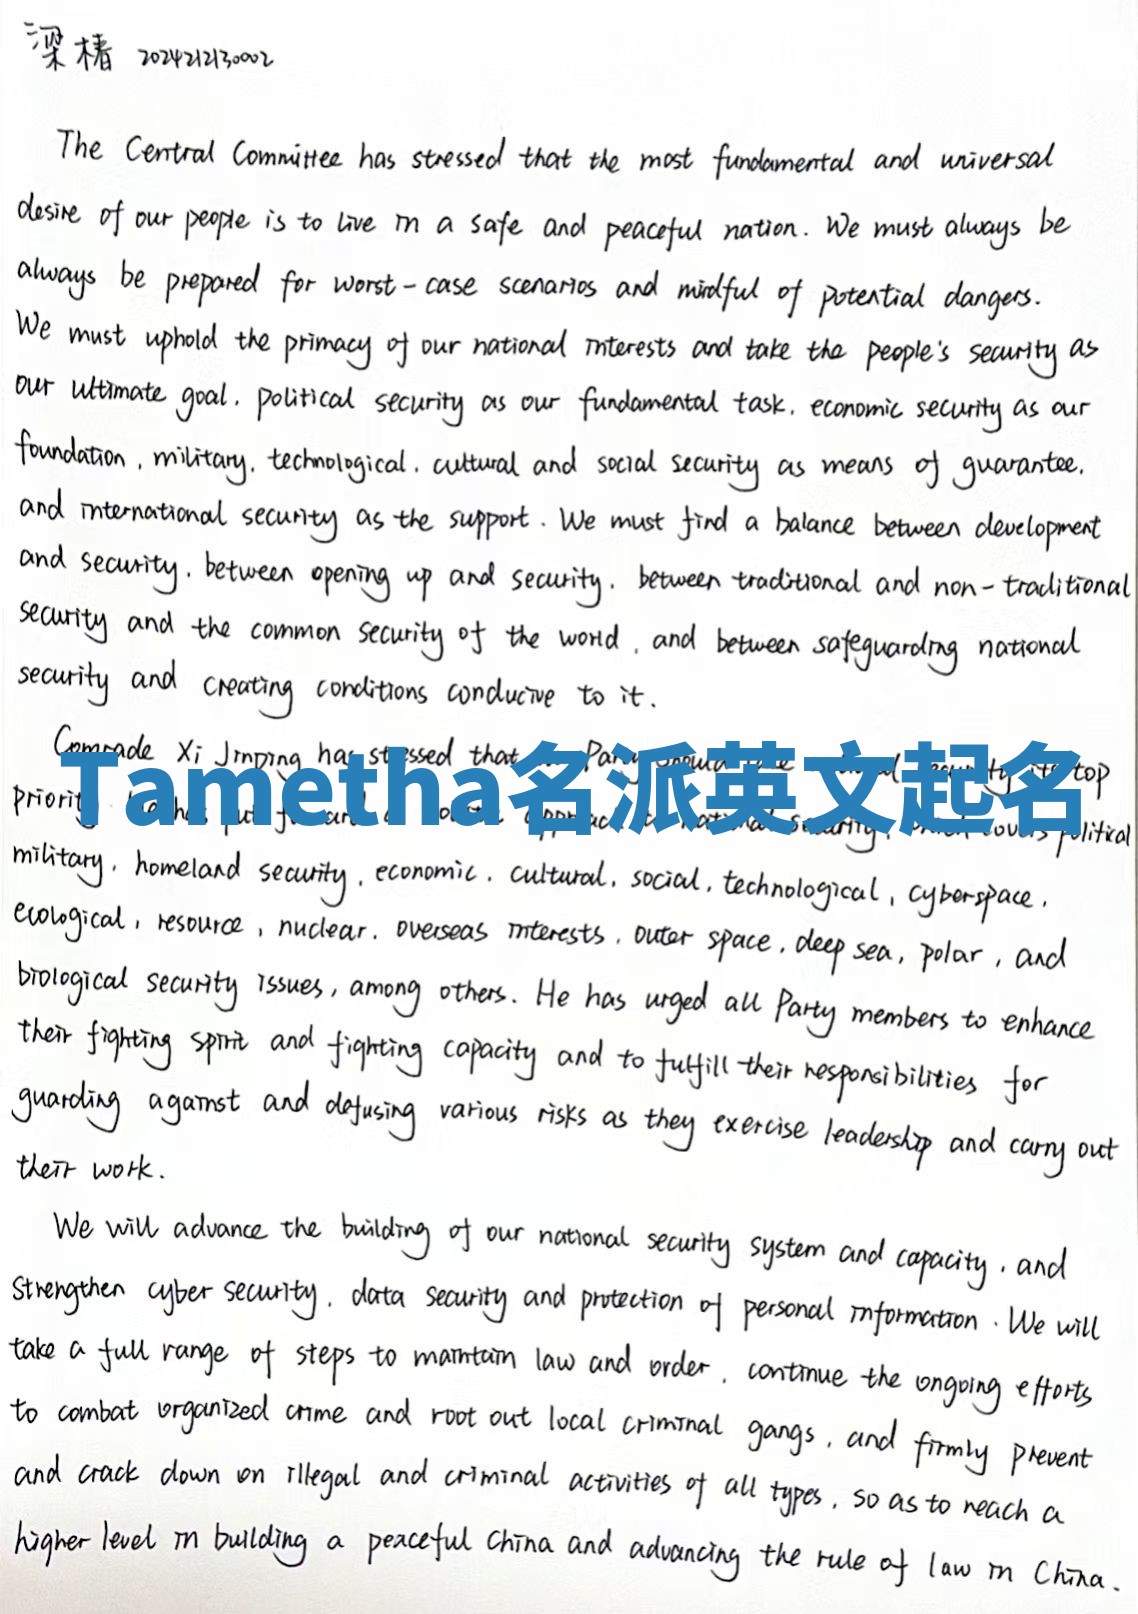 梁椿 2024212130002
The Central Committee has stressed that the most fundamental and universal
desire of our people is to live in a safe and peaceful nation. We must always be
always be prepared for worst-case scenarios and mindful of potential dangers.
We must uphold the primacy of our national interests and take the people's security as
our ultimate goal, political security as our fundamental task, economic security as our
foundation, military, technological, cultural and social security as means of guarantee,
and international security as the support. We must find a balance between development
and security, between opening up and security, between traditional and non-traditional
security and the common security of the world, and between safeguarding national
security and creating conditions conducive to it.
Comrade Xi Jinping has stressed that Party top
Tametha名派英文起名
priority national security, covers political
military, homeland security, economic, cultural, social, technological, cyberspace,
ecological, resource, nuclear, overseas interests, outer space, deep sea, polar, and
biological security issues, among others. He has urged all Party members to enhance
their fighting spirit and fighting capacity and to fulfill their responsibilities for
guarding against and defusing various risks as they exercise leadership and carry out
their work.
We will advance the building of our national security system and capacity, and
strengthen cyber security, data security and protection of personal information. We will
take a full range of steps to maintain law and order, continue the ongoing efforts
to combat organized crime and root out local criminal gangs, and firmly prevent
and crack down on illegal and criminal activities of all types, so as to reach a
higher level in building a peaceful China and advancing the rule of law in China.